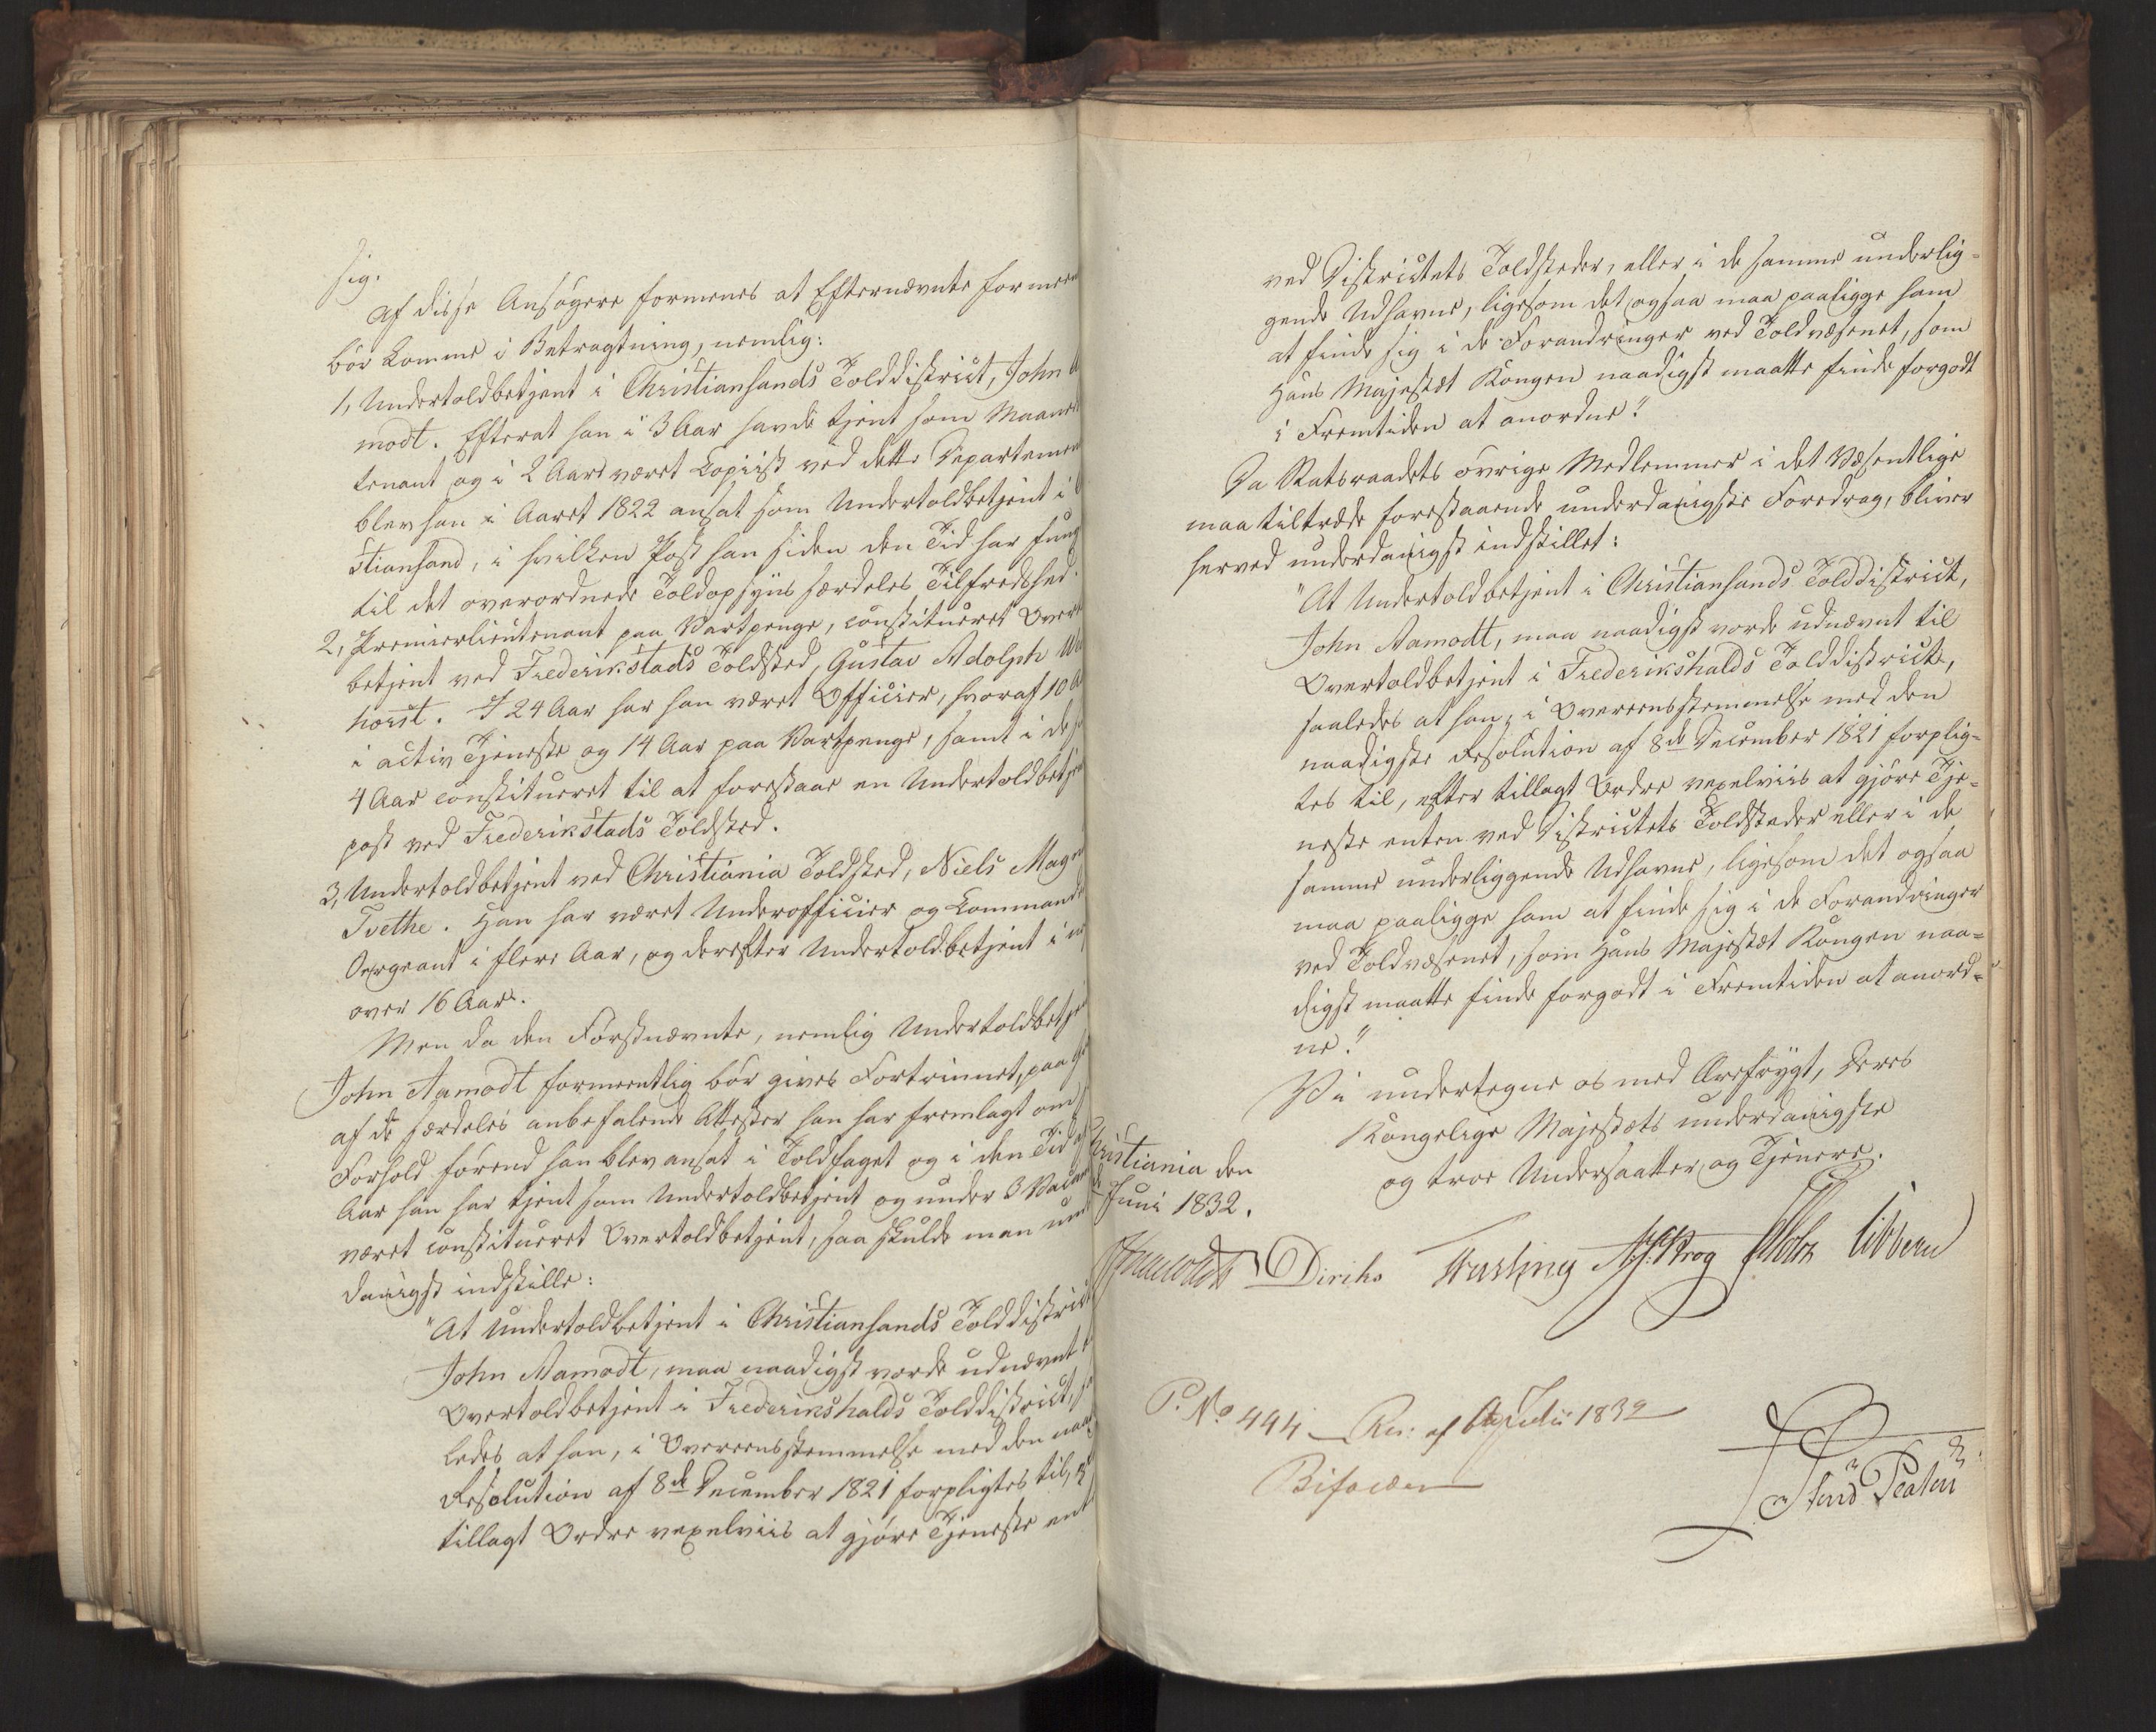 sig.
Af disse Ansøgere formenes at Efternævnte formeen
bør komme i Betragtning, nemlig:
1, Undertoldbetjent i Christiansands Tolddistrict, John A
modt. Efterat han i 3 Aar havde tjent som Maaneds
tenant og i 2 Aar været Copiist ved dette Departemen
blev han i Aaret 1822 ansat som Undertoldbetjent i
stiansand, i hvilken Post han siden den Tid har fung
til det overordnede Toldopsyns særdeles Tilfredshed.
2, Premierlieutenant paa Vartpenge, constitueret Over
betjent ved Frederikstads Toldsted, Gustav Adolph
horst. I 24 Aar har han været Officier, hvoraf 10 A
i activ Tjeneste og 14 Aar paa Vartpenge, samt i de s
4 Aar constitueret til at forestaae en Undertoldbetjen
post ved Frederikstads Toldsted.
3, Undertoldbetjent ved Christiania Toldsted, Niels Magn
Tvethe. Han har været Underofficier og Commande
Sergeant i flere Aar, og derefter Undertoldbetjent i
over 16 Aar.
Men da den Førstnævnte, nemlig Undertoldbetje
John Aamodt formeentlig bør gives Fortrinnet, paa
af de særdeles anbefalende Attester han har fremlagt om
Forhold førend han blev ansat i Toldfaget og i den Tid af
Aar han har tjent som Undertoldbetjent og under 3 Vacan
været constitueret Overtoldbetjent, saa skulde man und
danigst indstille:
"At Undertoldbetjent i Christiansands Tolddistrict
John Aamodt, maa naadigst vorde udnævnt t
Overtoldbetjent i Frederikshalds Tolddistrict, s
ledes at han, i Overeensstemmelse med den naad
Resolution af 8de December 1821 forpligtes til,
tillagt Ordre vexelviis at gjøre Tjeneste ent
ved Districtets Toldsteder, eller i de samme underlig-
gende Udhavne, ligesom det ogsaa maa paaligge ham
at finde sig i de Forandringer ved Toldvæsenet, som
Hans Majestæt Kongen naadigst maatte finde forgodt
i Fremtiden at anordne."
Da Statsraadets øvrige Medlemmer i det Væsentlige
maa tiltræde forestaaende underdanigste Foredrag, bliver
herved underdanigst indstillet:
"At Undertoldbetjent i Christiansands Tolddistrict,
John Aamodt, maa naadigst vorde udnævnt til
Overtoldbetjent i Frederikshalds Tolddistrict,
saaledes at han, i Overeensstemmelse med den
naadigste Resolution af 8de December 1821 forplig-
tes til, efter tillagt Ordre vexelviis at gjøre Tje-
neste enten ved Districtets Toldsteder eller i de
samme underliggende Udhavne, ligesom det ogsaa
maa paaligge ham at finde sig i de Forandringer
ved Toldvæsenet, som Hans Majestæt Kongen naa-
digst maatte finde forgodt i Fremtiden at anord-
ne."
Vi undertegne os med Ærefrygt, Deres
Kongelige Majestæts underdanigste
og troe Undersaatter og Tjenere.
ristiania den
Juni 1832.
Diriks Fasting Krog Holst Sibbern
P. No 494 Res: af Juli 1832
Bifaldes